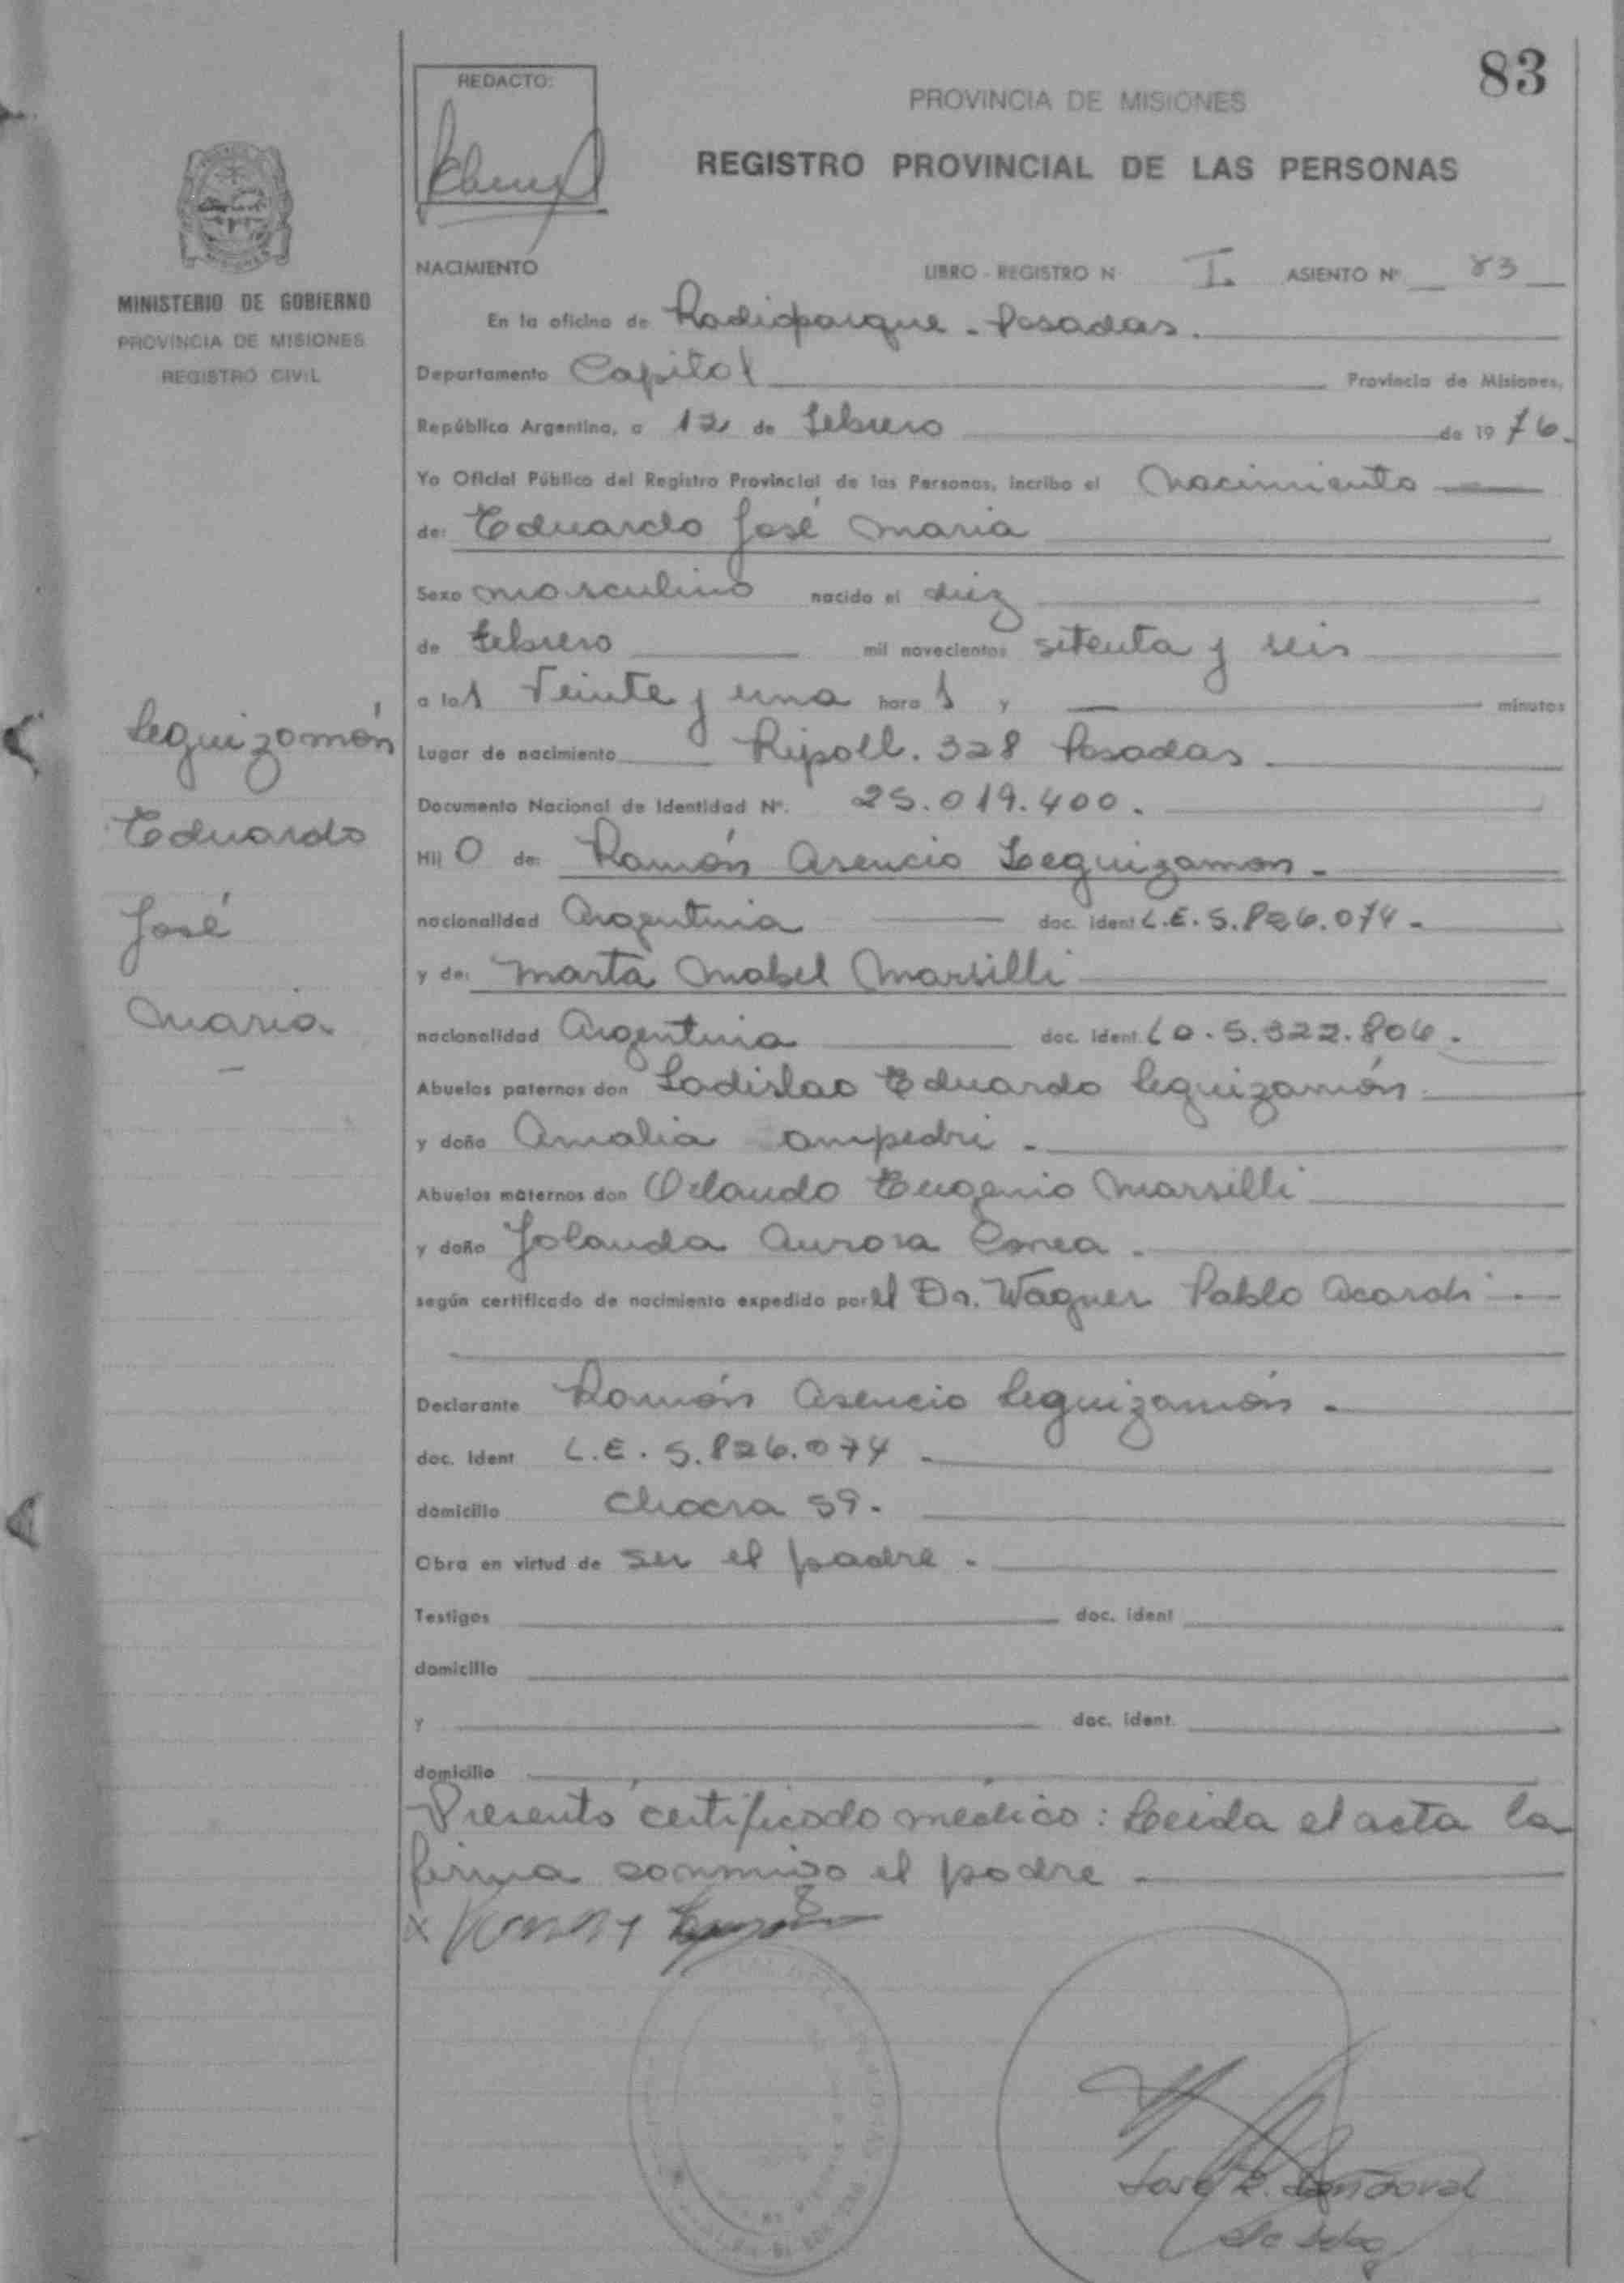 83
REDACTO:
PROVINCIA DE MISIONES
REGISTRO PROVINCIAL DE LAS PERSONAS
MINISTERIO DE GOBIERNO
PROVINCIA DE MISIONES
REGISTRO CIVIL
NACIMIENTO LIBRO - REGISTRO N I. ASIENTO Nº 83
En la oficina de Radioparque - Posadas.
Departamento Capital Provincia de Misiones,
República Argentina, a 12 de Febrero de 19 76.
Yo Oficial Público del Registro Provincial de las Personas, incribo el Nacimiento
de: Eduardo José Maria
Sexo masculino nacido el diez
de Febrero mil novecientos setenta y seis
a las veinte y una hora s y minutos
Leguizamón
Eduardo
José
Maria
Lugar de nacimiento Ripoll. 328 Posadas
Documento Nacional de Identidad Nº. 25.019.400.
Hij O de: Ramón Asencio Leguizamon.
nacionalidad Argentina doc. ident L.E. 5.826.074-
y de: Marta Mabel Marsilli
nacionalidad Argentina doc. ident. 5.322.806.
Abuelos paternos don Ladislao Eduardo Leguizamón
y doña Amalia ampedri.
Abuelos maternos don Orlando Eugenio Marsilli
y doña Yolanda Aurora Correa.
según certificado de nacimiento expedido por el Dr. Wagner Pablo Acardi
Declarante Ramón Asencio Leguizamón.
doc. ident L.E. 5.826.074
domicilio Chacra 59.
Obra en virtud de ser el padre.
Testigos doc. ident
domicilio
y doc. ident.
domicilio
Presentó certificado médico: Leida el acta la
firma conmigo el padre
X
José R. Sandoval